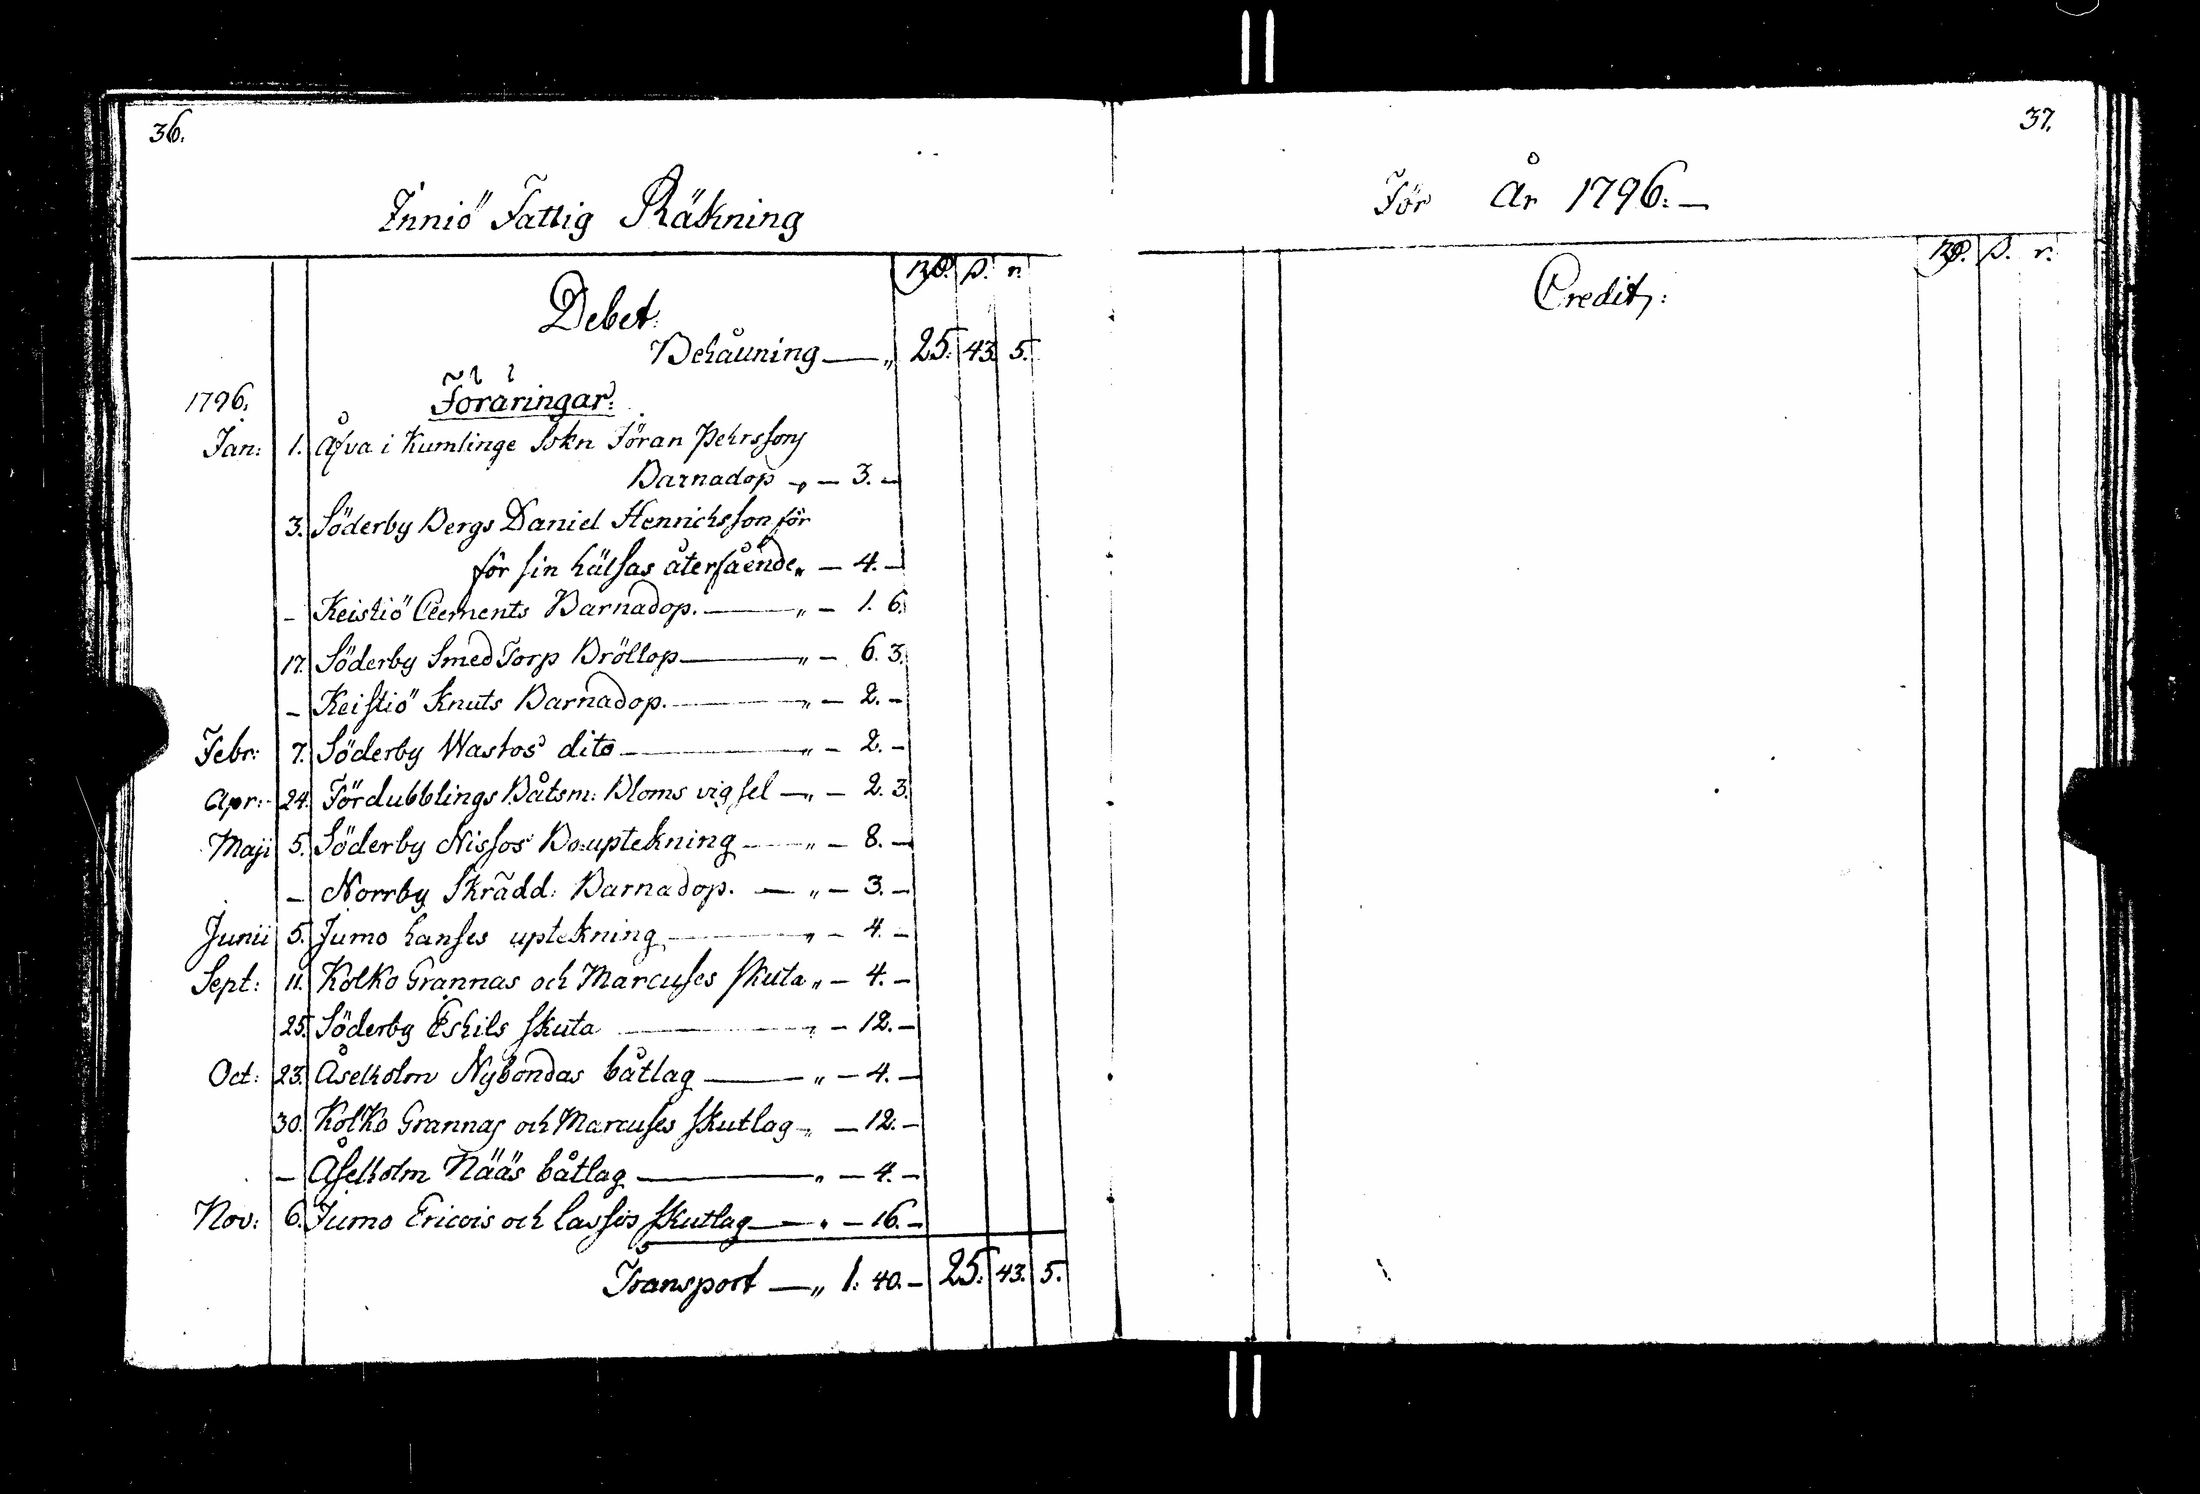 36.
Inniö Fattig Räkning
Rd. ß. r.
Debet.
Behåuning — „ 25. 43. 5.
1796. Föräringar.
Jan: 1. Åfva i Kumlinge Sokn Jöran Pehrssons
Barnadop „ — 3. —
3. Söderby Bergs Daniel Henrichsson för
för sin hälsas återfåënde „ — 4. —
— Keistiö Clements Barnadop. — „ — 1. 6.
17. Söderby Smed Torp Bröllop — „ — 6. 3.
— Keistiö Knuts Barnadop. — „ — 2. —
Febr: 7. Söderby Wastos dito — „ — 2. —
Apr: 24. Fördubblings Båtsm: Bloms vigsel — „ — 2. 3.
Maji 5. Söderby Nissos Bouptekning — „ — 8. —
— Norrby Skrädd: Barnadop. — „ — 3. —
Junii 5. Jumo hanses uptekning — „ — 4. —
Sept: 11. Kolko Grannas och Marcuses skuta „ — 4. —
25. Söderby Eskils skuta — „ — 12. —
Oct: 23. Åselholm Nybondas båtlag — „ — 4. —
30. Kolko Grannas och Marcuses skutlag „ — 12. —
— Åselholm Nääs båtlag — „ — 4. —
Nov: 6. Jumo Ericois och Lassos skutlag — „ — 16. —
Transport — „ 1. 40. — 25. 43. 5.
37.
För År 1796. —
Rd. ß. r.
Credit: